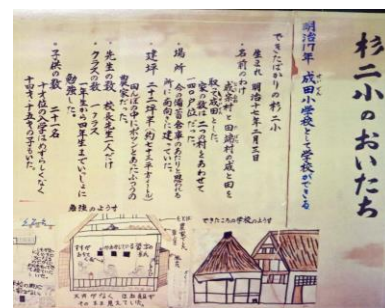 杉二小のおいたち
明治17年 成田小学校として学校ができる
できたばかりの杉二小
生まれ 明治十七年二月三日
・名前のわけ
成宗村と田端村の成と田を
取って成田とした。
家の数は二つの村をあわせて
一四〇戸位だった。
・場所
所に南向きに建っていた。
・建坪 二十二坪半(約七十三平方メートル)
田んぼの中にポツンとあったふつうの
農家だった。
・先生の数 校長先生一人だけ
・クラスの数 一クラス
一年生から四年生までいっしょに
勉強した。
・子供の数 二十一名
十才位の入学はめずらしくなく
十四才、十五才の子もいた。
勉強のようす
できたころの学校のようす
天井がなく